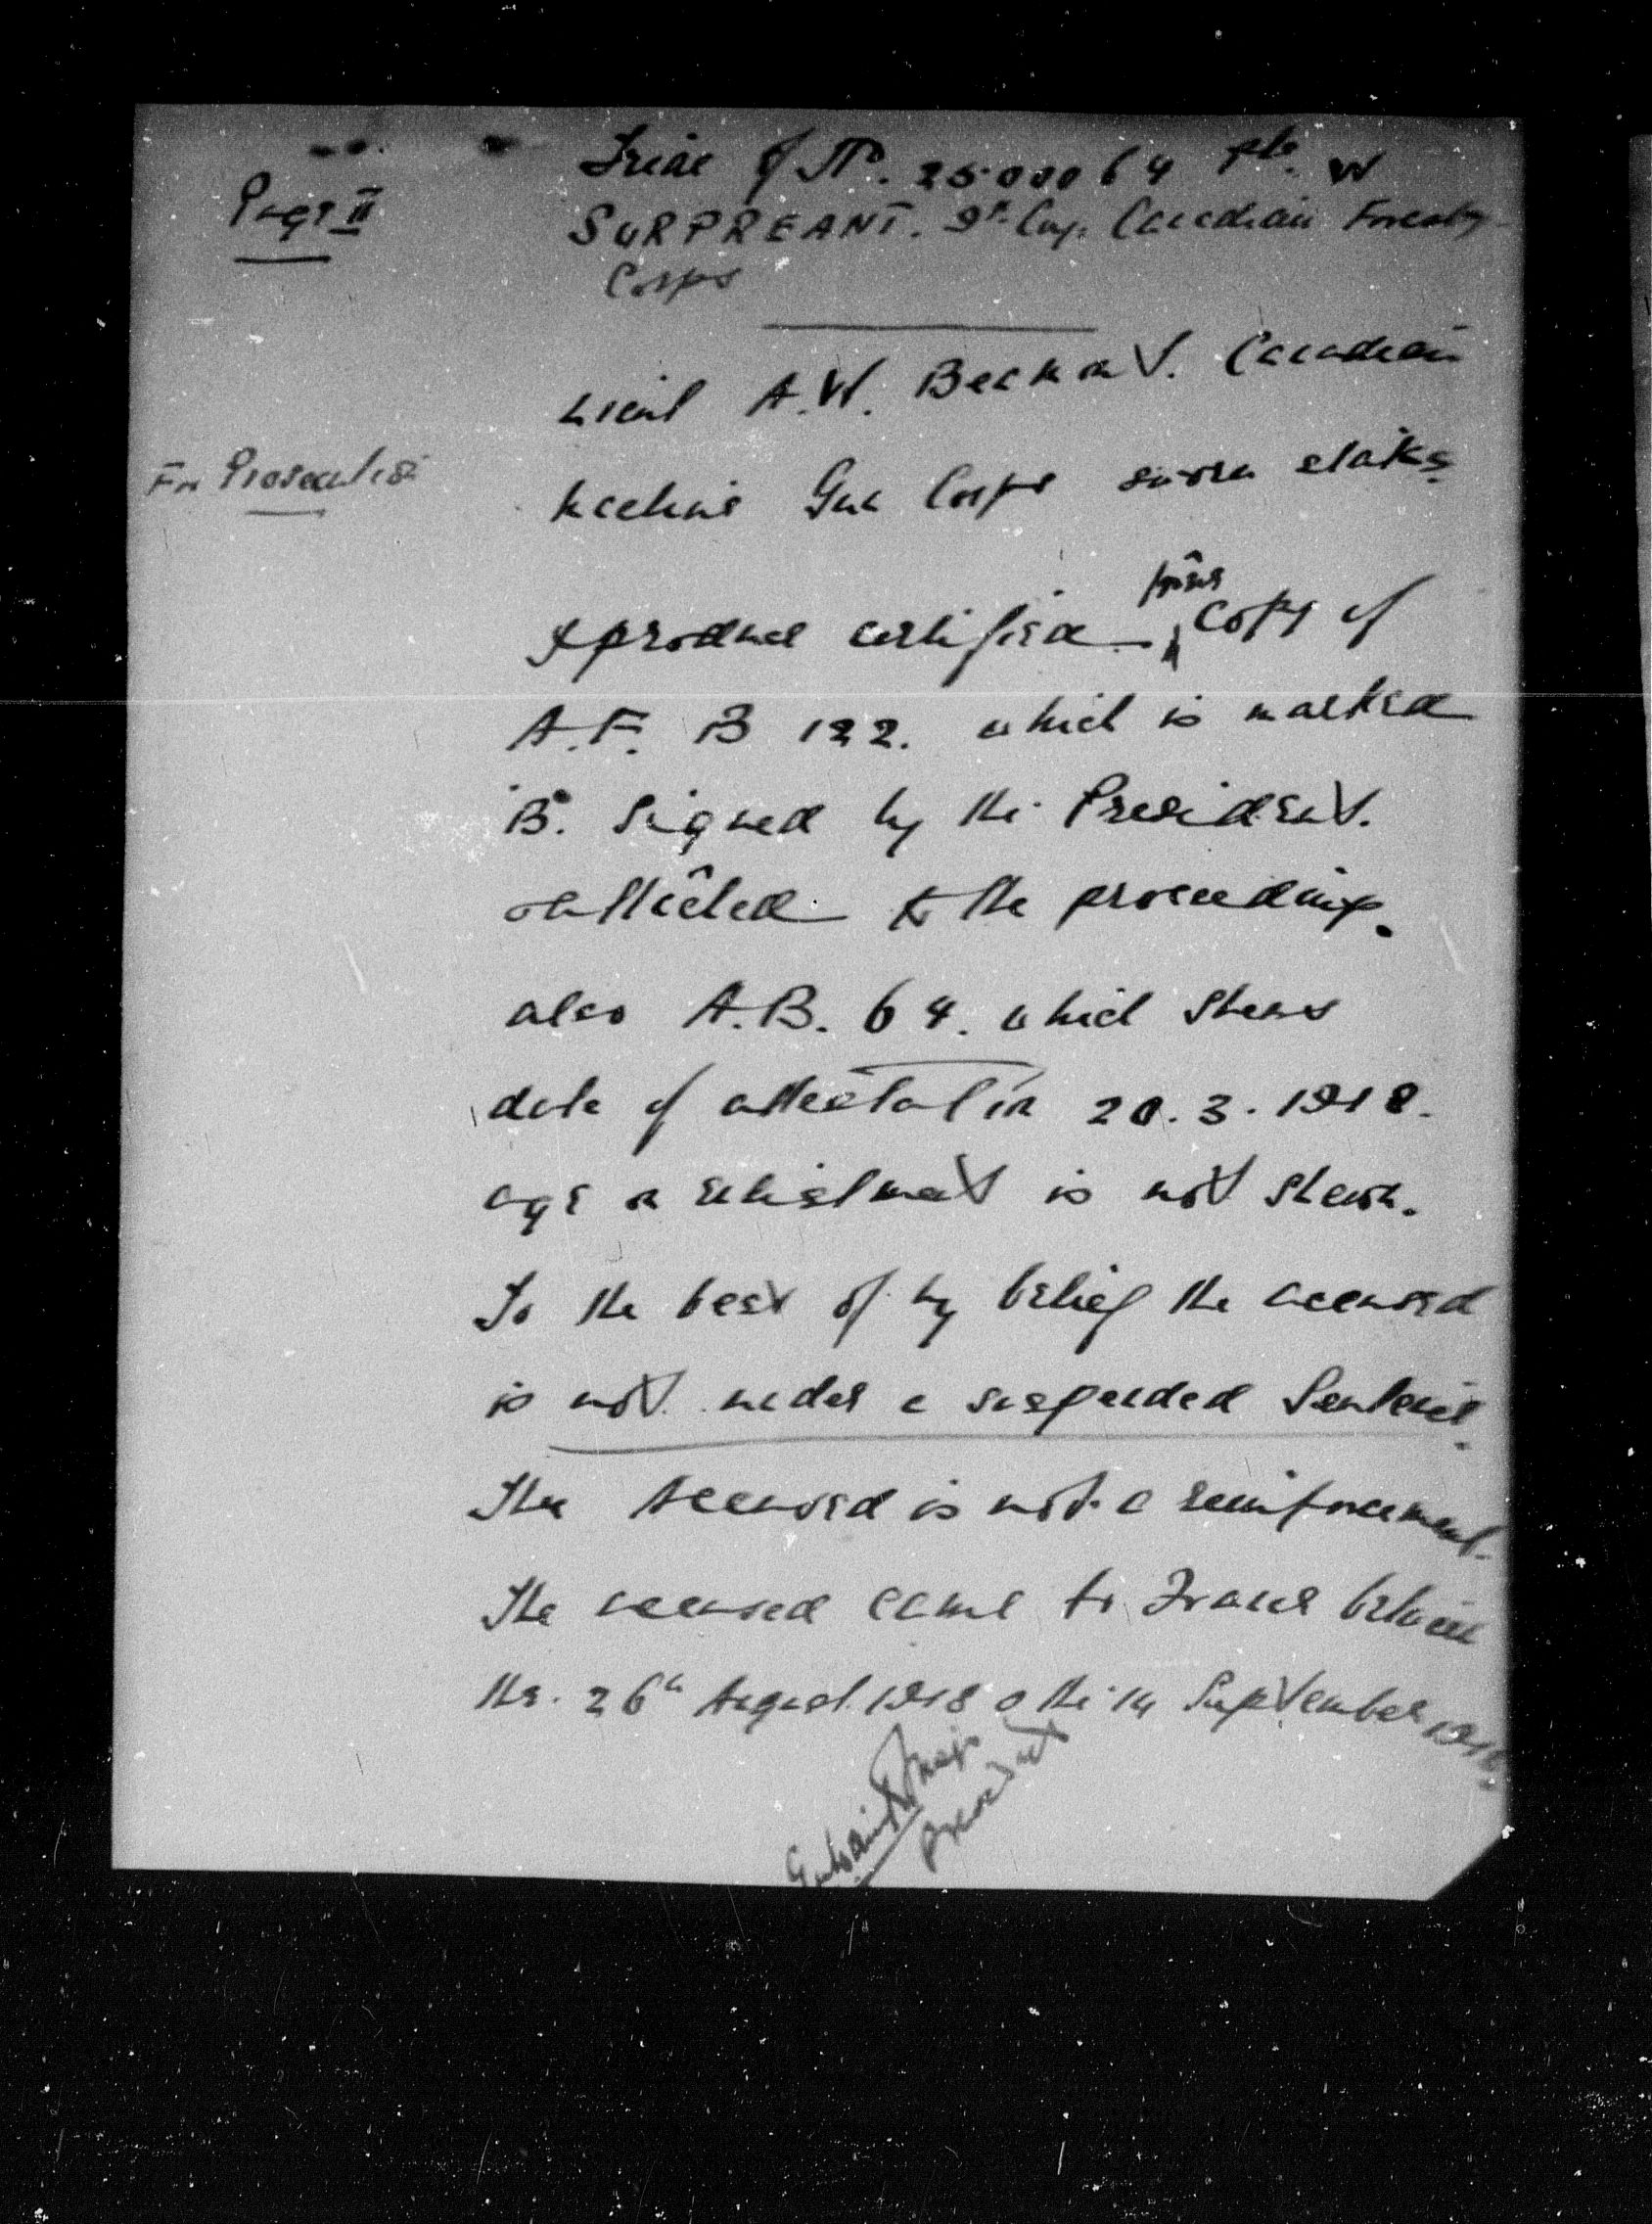 Page II
Trial of No. 2500064 Pte. W
SURPREANT. Coy. Canadian Forestry
Corps
Lieut A.W. Canadian
For Prosecution
Machine Gun Corps sworn states
true
I produce certified copy of
A.F. B 122. which is marked
"B". Signed by the President.
& attached to the proceedings.
also A.B. 64. which shews
date of attestation 20.3.1918.
age on enlistment is not shewn.
To the best of my belief the accused
is not under a suspended Sentence.
The Accused is not a reinforcement.
The accused came to France between
the 26th August 1918 & the 14 September 1918.
Major
President